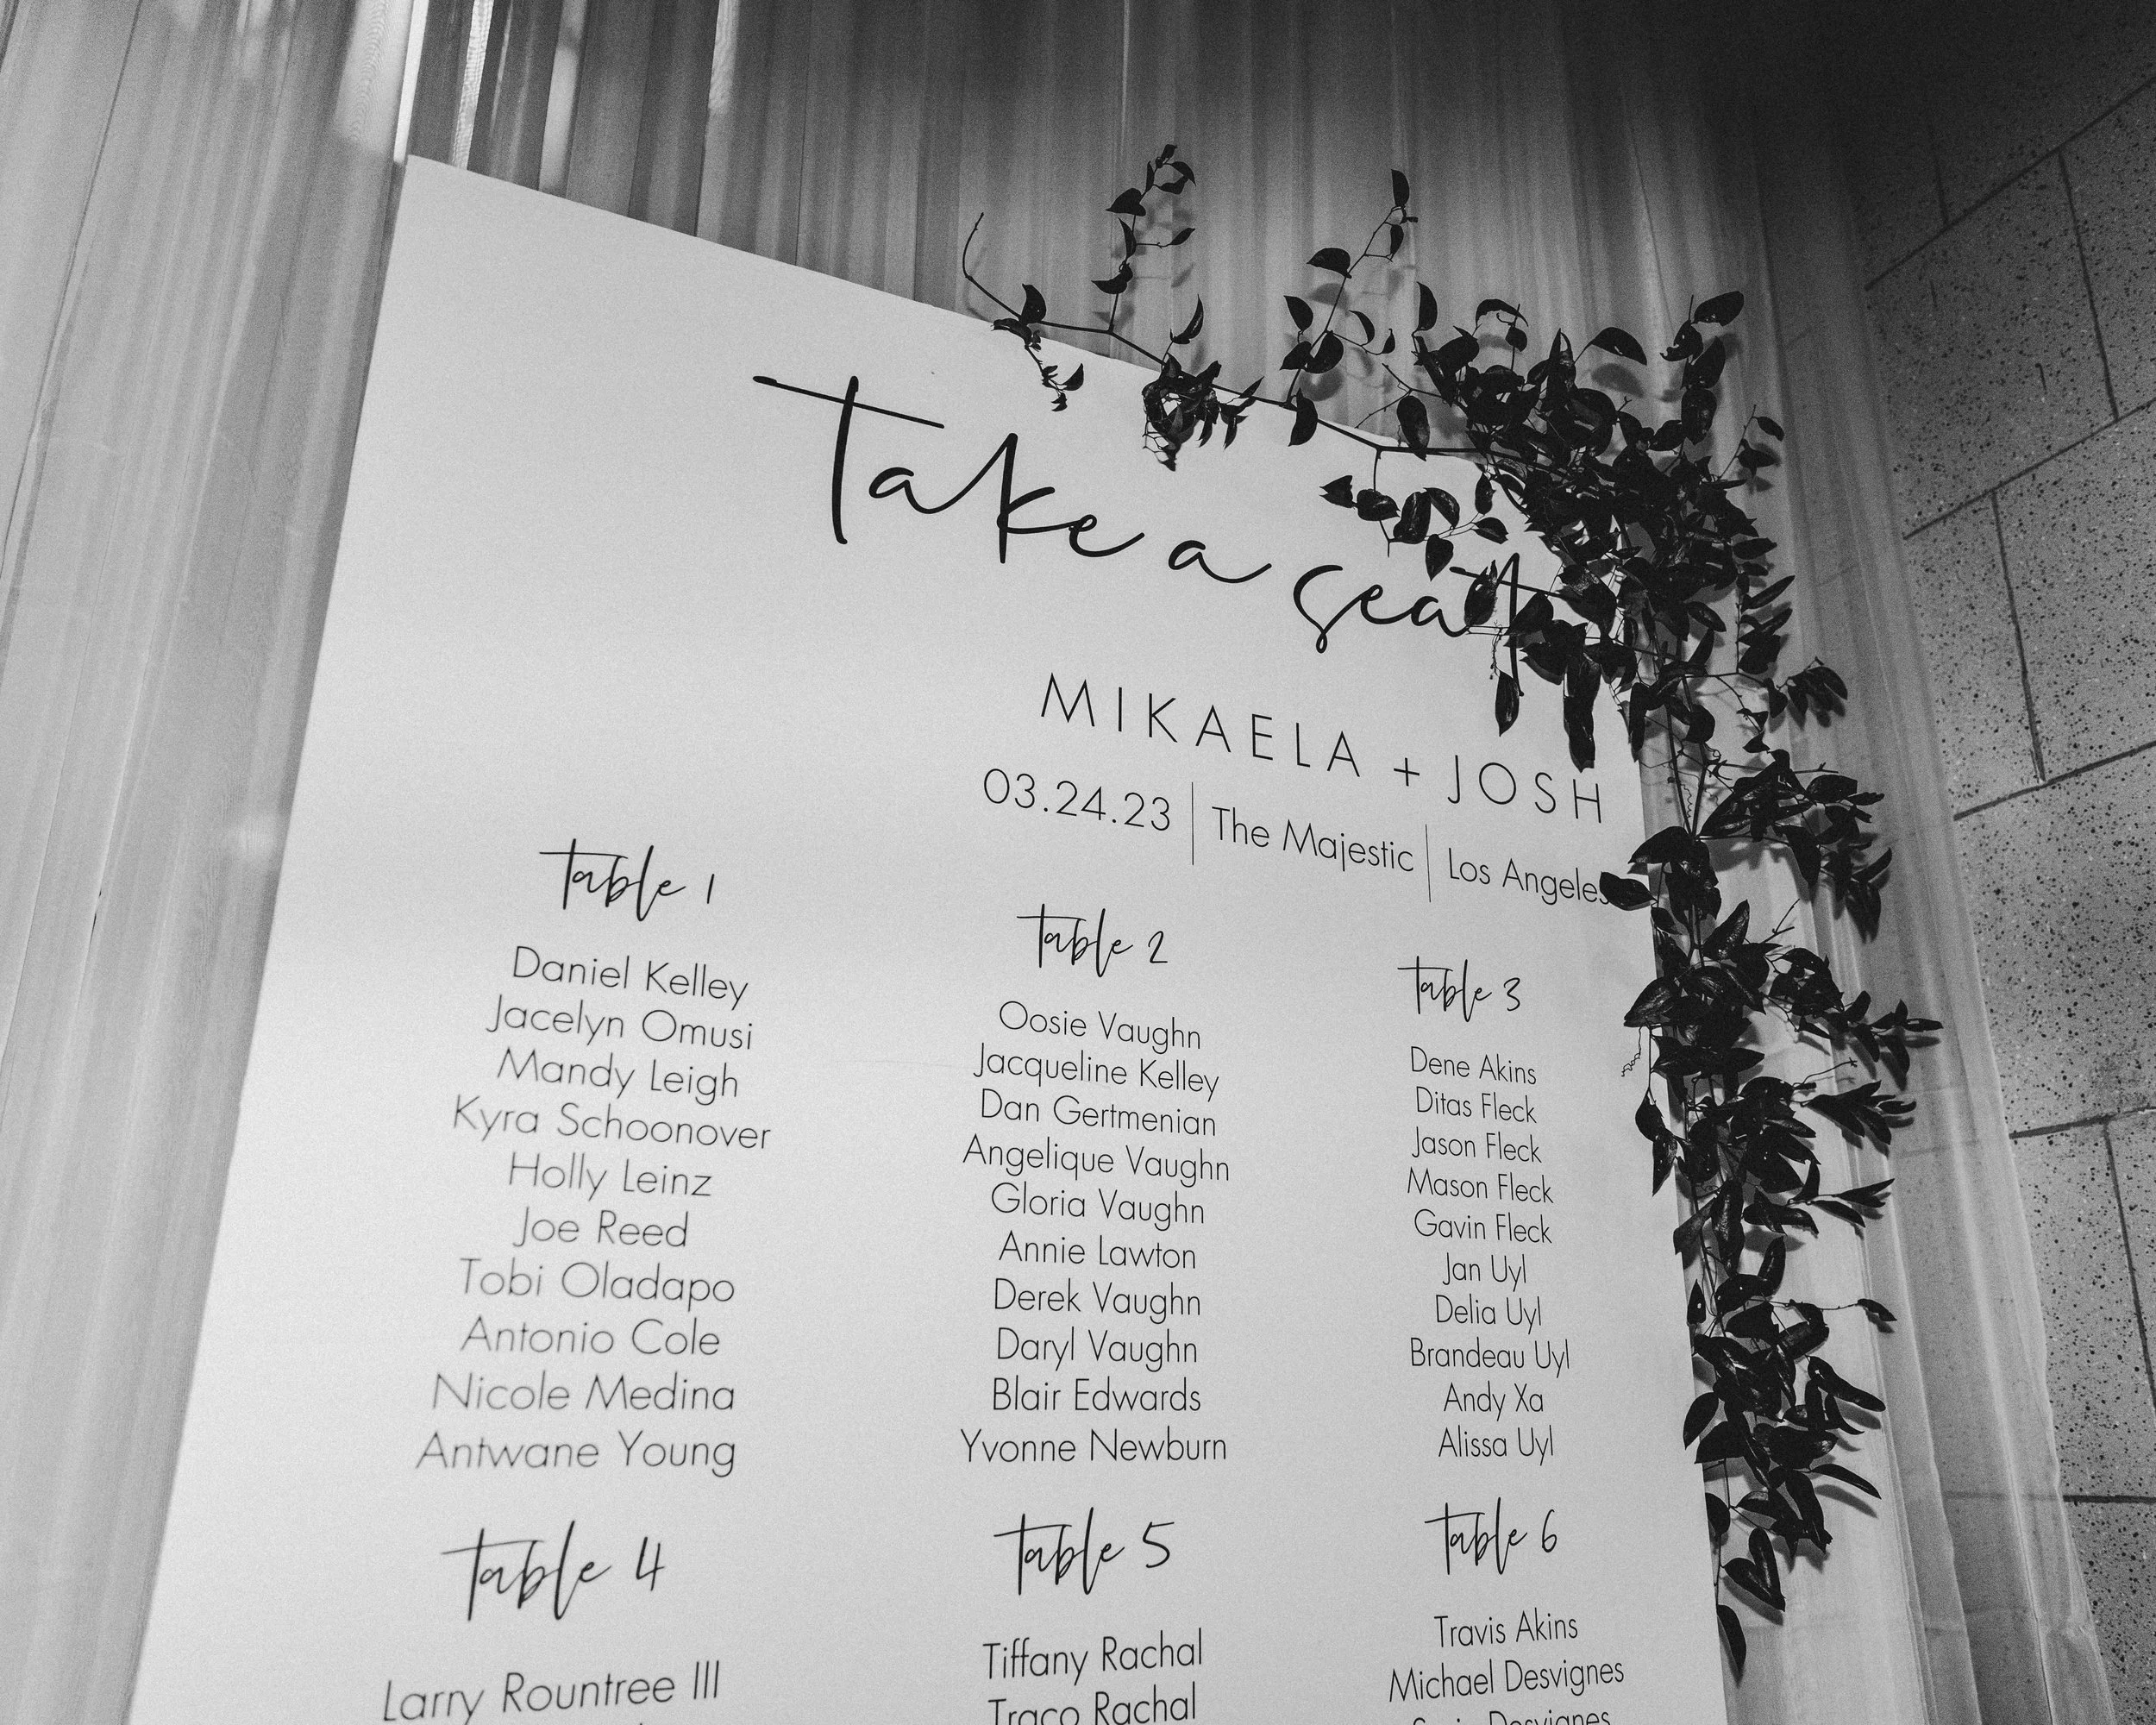 Take a seat
MIKAELA + JOSH
03.24.23 | The Majestic | Los Angeles
Table 1
Daniel Kelley
Jacelyn Omusi
Mandy Leigh
Kyra Schoonover
Holly Leinz
Joe Reed
Tobi Oladapo
Antonio Cole
Nicole Medina
Antwane Young
Table 2
Oosie Vaughn
Jacqueline Kelley
Dan Gertmenian
Angelique Vaughn
Gloria Vaughn
Annie Lawton
Derek Vaughn
Daryl Vaughn
Blair Edwards
Yvonne Newburn
Table 3
Dene Akins
Ditas Fleck
Jason Fleck
Mason Fleck
Gavin Fleck
Jan Uyl
Delia Uyl
Brandeau Uyl
Andy Xa
Alissa Uyl
Table 4
Larry Rountree III
Table 5
Tiffany Rachal
Traco Rachal
Table 6
Travis Akins
Michael Desvignes
Desvignes